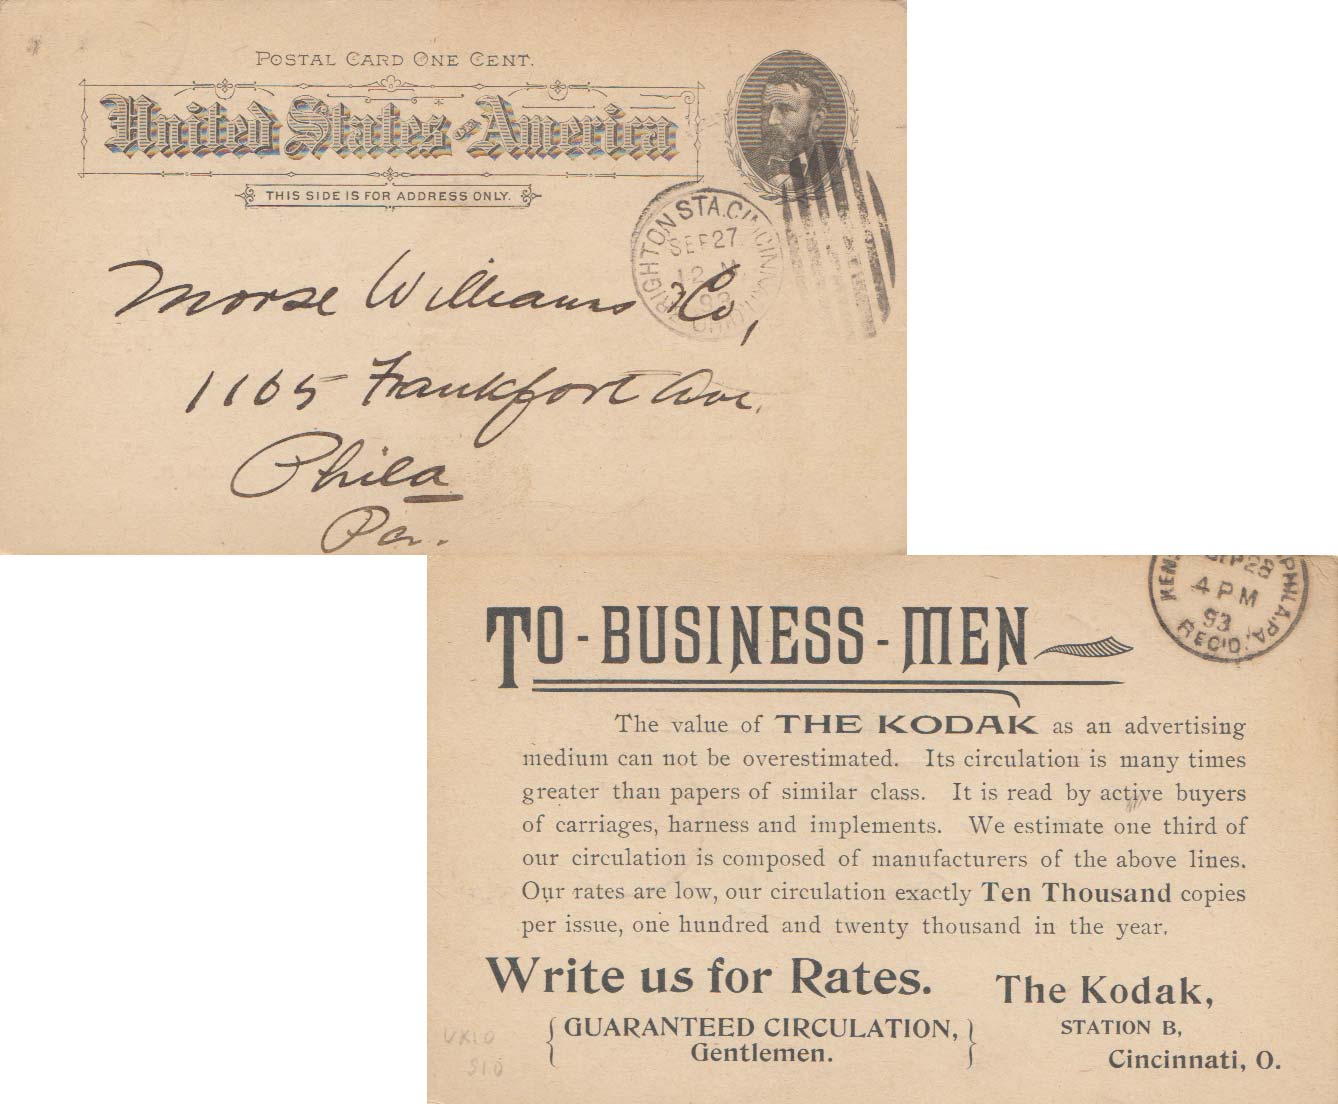 POSTAL CARD ONE CENT.
United States OF America
THIS SIDE IS FOR ADDRESS ONLY.
BRIGHTON STA. CINCINNATI, OHIO
SEP 27
12 M
93
Morse Williams Co,
1105 Frankfort Ave.
Phila
Pa.
KEN. PHILA. PA.
SEP 28
4 PM
93
REC'D.
TO - BUSINESS - MEN
The value of THE KODAK as an advertising
medium can not be overestimated. Its circulation is many times
greater than papers of similar class. It is read by active buyers
of carriages, harness and implements. We estimate one third of
our circulation is composed of manufacturers of the above lines.
Our rates are low, our circulation exactly Ten Thousand copies
per issue, one hundred and twenty thousand in the year.
Write us for Rates.
GUARANTEED CIRCULATION,
Gentlemen.
The Kodak,
STATION B,
Cincinnati, O.
UX10
S10